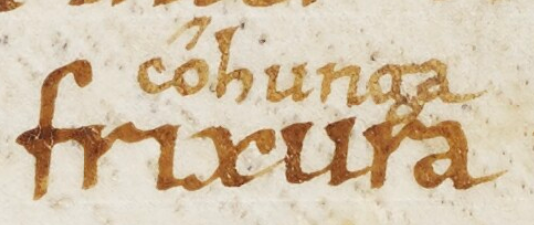 cóhunga
frixura